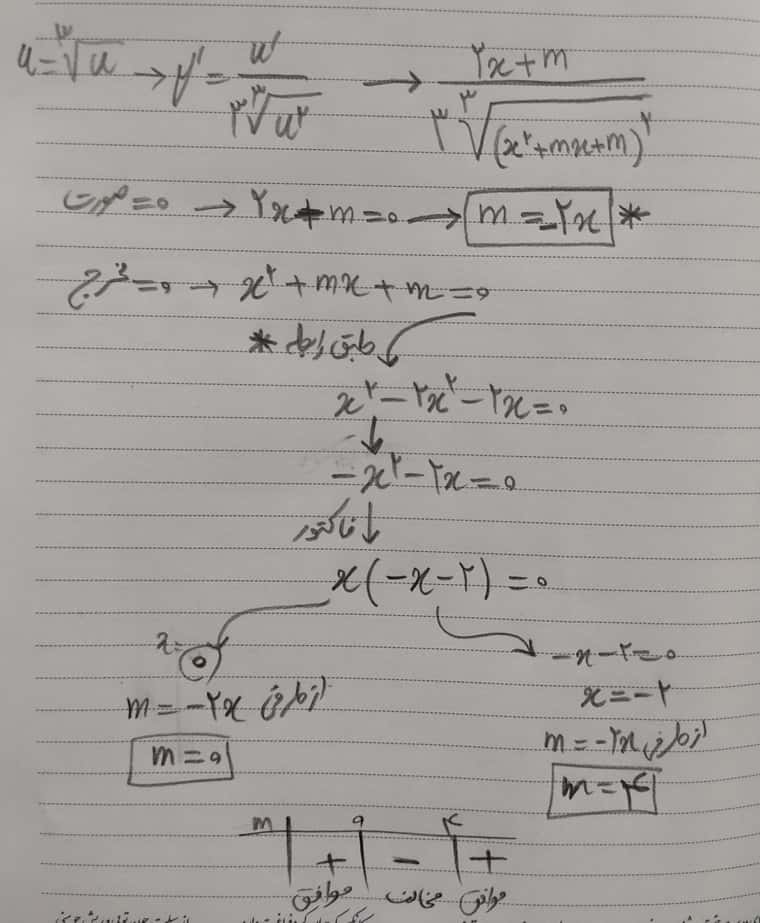 u = ∛u → y' = u' / ۳∛u^۲ → ۲x + m / ۳∛(x^۲ + mx + m)^۲
صورت = ۰ → ۲x + m = ۰ → m = -۲x *
مخرج = ۰ → x^۲ + mx + m = ۰
طبق رابطه *
x^۲ - ۲x^۲ - ۲x = ۰
↓
-x^۲ - ۲x = ۰
فاکتور ↓
x(-x - ۲) = ۰
x = ۰
-x - ۲ = ۰
x = -۲
m = -۲x از طرفی
m = ۰
m = -۲x از طرفی
m = ۴
m ۰ ۴
+ - +
موافق مخالف موافق